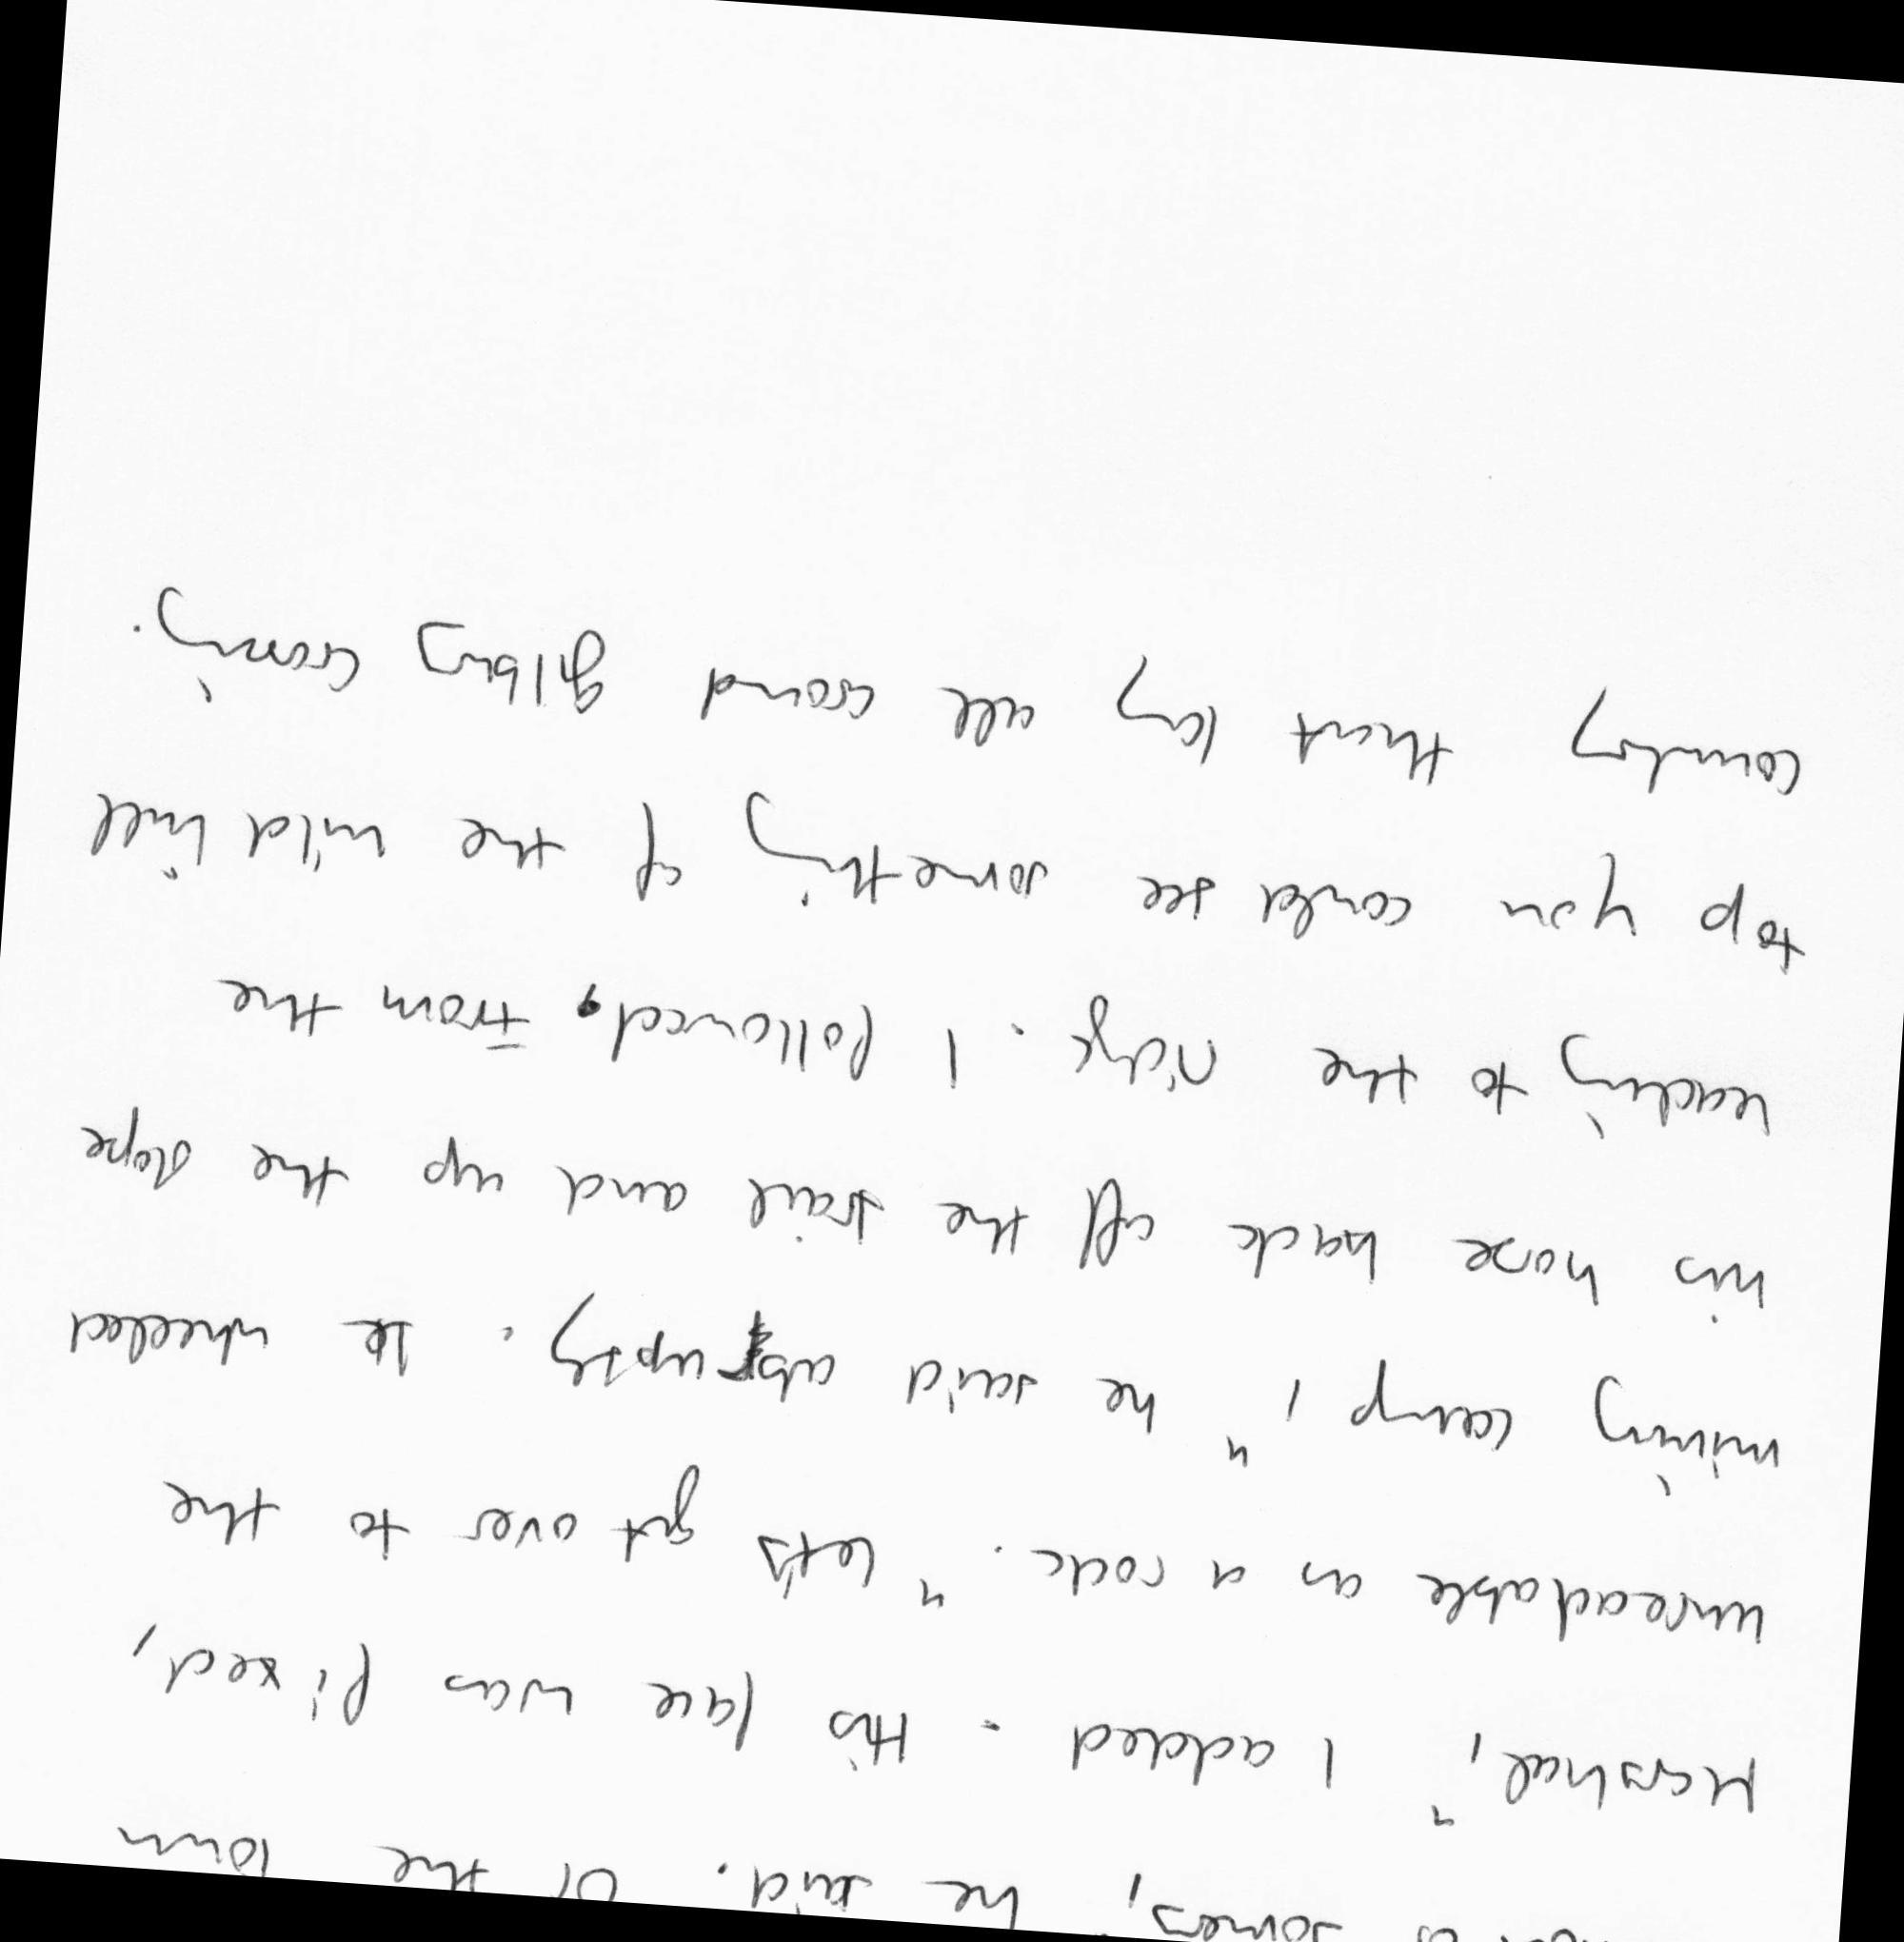 he said. Or the town
Marshal," I added. His face was fixed,
unreadable as a rock. "Let's get over to the
mining camp," he said abruptly. He wheeled
his horse back off the trail and up the slope
leading to the ridge. I followed. From the
top you could see something of the wild hill
country that lay all around Gilbury Crossing.